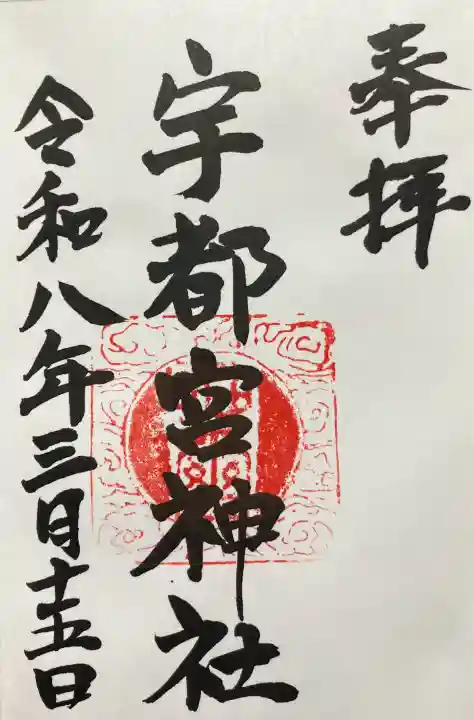 奉拝
宇都宮神社
令和八年三月十五日